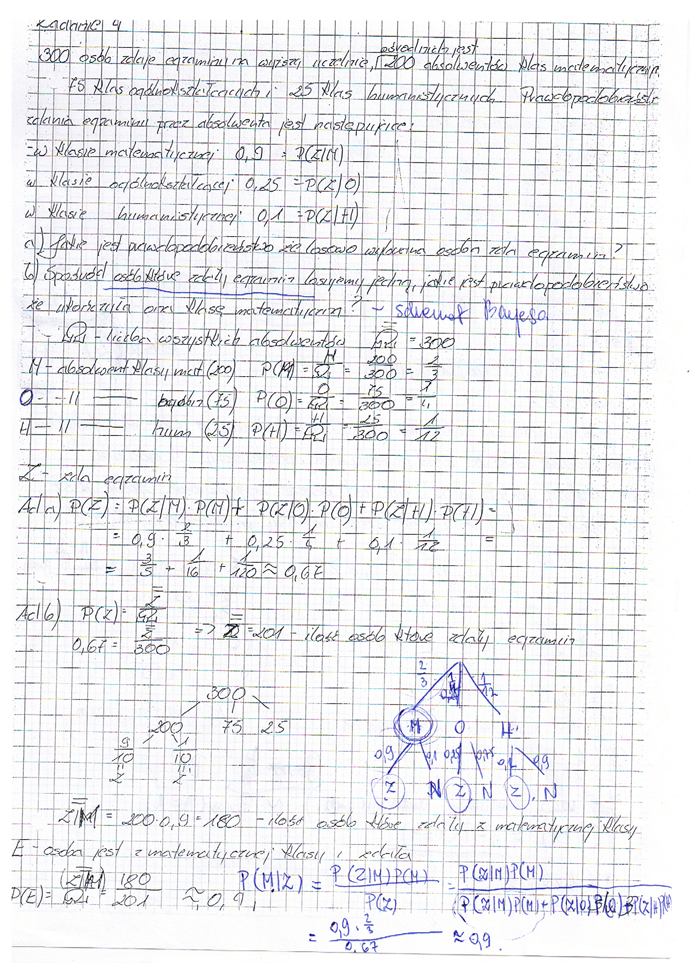 Zadanie 4
300 osób zdaje egzaminy na wyższą uczelnię, wśród nich jest 200 absolwentów klas matematycznych
75 klas ogólnokształcących i 25 klas humanistycznych. Prawdopodobieństwo
zdania egzaminu przez absolwenta jest następujące:
- w klasie matematycznej 0,9 = P(Z|M)
w klasie ogólnokształcącej 0,25 = P(Z|O)
w klasie humanistycznej 0,1 = P(Z|H)
a) Jakie jest prawdopodobieństwo że losowo wybrana osoba zda egzamin?
b) Spośród osób które zdały egzamin losujemy jedną, jakie jest prawdopodobieństwo
że ukończyła ona klasę matematyczną? ~ schemat Bayesa
- Ω - liczba wszystkich absolwentów Ω = 300
M - absolwent klasy mat (200) P(M) = M/Ω = 200/300 = 2/3
O - 11 - ogóln (75) P(O) = O/Ω = 75/300 = 1/4
H - 11 - hum (25) P(H) = H/Ω = 25/300 = 1/12
Z - zda egzamin
Ad a) P(Z) = P(Z|M)·P(M) + P(Z|O)·P(O) + P(Z|H)·P(H) =
= 0,9 · 2/3 + 0,25 · 1/4 + 0,1 · 1/12 =
= 3/5 + 1/16 + 1/120 ≈ 0,67
Ad b) P(Z) = Z/Ω
0,67 = Z/300 => Z = 201 - ilość osób które zdały egzamin
300
200 75 25
9/10 1/10
Z Z'
2/3 1/4 1/12
M O H
0,9 0,1 0,25 0,75 0,1 0,9
Z N Z N Z N
Z|M = 200·0,9 = 180 - ilość osób które zdały z matematycznej klasy
E - osoba jest z matematycznej klasy i zdała
P(E) = (Z|M)/Ω = 180/201 ≈ 0,9
P(M|Z) = P(Z|M)P(M)/P(Z) = P(Z|M)P(M)/P(Z|M)P(M)+P(Z|O)P(O)+P(Z|H)P(H)
= 0,9 · 2/3 / 0,67 ≈ 0,9